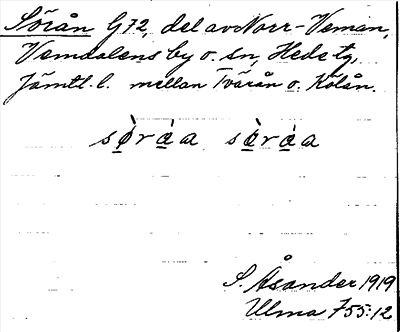 Sörån G72, del av Norr-Veman,
Vemdalens by o. sn, Hede tg,
Jämtl. l. mellan Tvärån o. Kölån.
sø̀ràa sàràa
S. Åsander 1919
Ulma 755:12